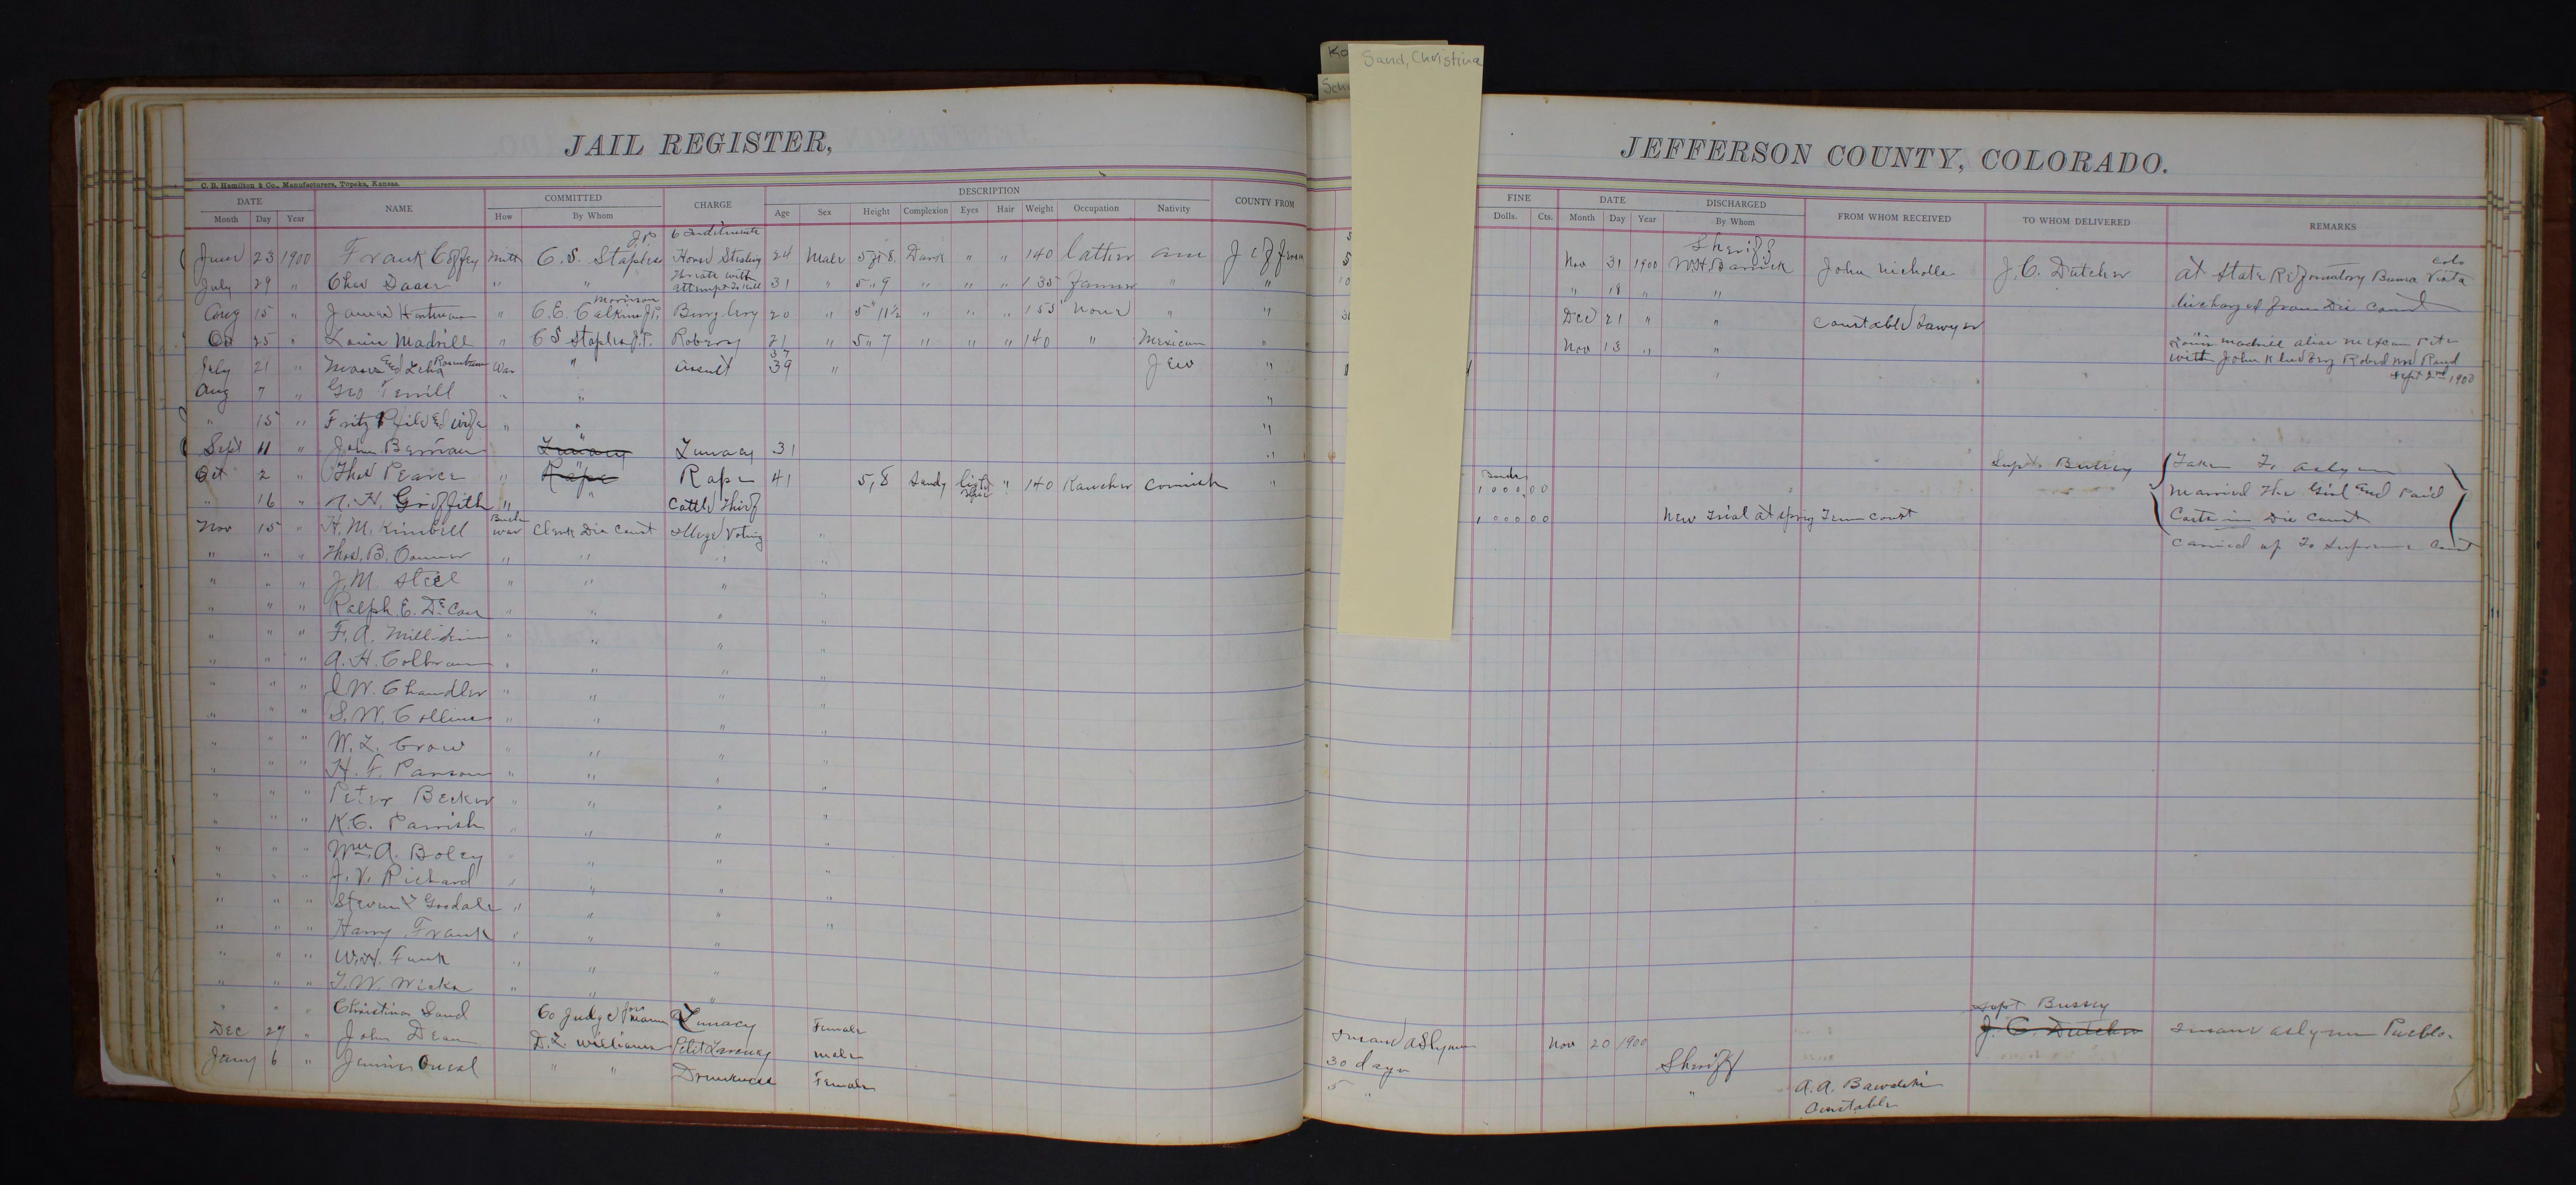 Sand, Christina
JAIL REGISTER,
C. B. Hamilton & Co., Manufacturers, Topeka, Kansas.
DATE NAME COMMITTED CHARGE DESCRIPTION COUNTY FROM
Month Day Year How By Whom Age Sex Height Complexion Eyes Hair Weight Occupation Nativity
June 23 1900 Frank Coffey Mitt C. S. Staples J.P. 6 Indictments Horse Stealing 24 Male Dark " " 140 am Jefferson
July 29 " Chas " " Threats with attempt to Kill 31 " 5 " 9 " " " 135 Farmer " "
Aug 15 " James Hartman " C. E. Calkins J.P. Morrison Burglary 20 " 5 " 11½ " " " 155 None " "
Oct 25 " Louis Madrill " C S Staples J.P. Robery 21 " 5 " 7 " " " 140 " Mexican "
July 21 " and Lena Rosenbaum War " assult 37 39 " Jew "
Aug 7 " Geo Terrill " " "
" 15 " Fritz and wife " " "
Sept 11 " John Berman Lunacy " Lunacy 31 "
Oct 2 " Thos Pearce " Rape " Rape 41 5,8 Sandy light " 140 Rancher Cornish "
" 16 " Griffith " " Cattle Thief
Nov 15 " H. M. Kimbell War Clerk Dis Court Illegal Voting "
" " " Thos. B. " " " "
" " " J. M. Steel " " " "
" " " Ralph E. " " " "
" " " F. A. Millikin " " " "
" " " A. H. Colbran " " " "
" " " J W. Chandler " " " "
" " " S. W. Collins " " " "
" " " W. L. Crow " " " "
" " " H. F. Parsons " " " "
" " " Peter Becker " " " "
" " " K. C. Parrish " " " "
" " " Wm A. Boley " " " "
" " " J. V. Richard " " " "
" " " Steven Goodale " " " "
" " " Harry Frank " " " "
" " " W. H. Funk " " "
" " " J. W. Wicks " " "
" " " Christina Sand Co Judge Lunacy Female
Dec 27 " John Dean D. L. Williams Petit Larceny male
Jany 6 " " " Drunkness Female
JEFFERSON COUNTY, COLORADO.
FINE DATE DISCHARGED FROM WHOM RECEIVED TO WHOM DELIVERED REMARKS
Dolls. Cts. Month Day Year By Whom
Nov 31 1900 Sheriff John Nicholls J. C. Dutcher at State Reformatory Buena Vista Colo
" 18 " " discharged from Dis Court
Dec 21 " " Constable Sawyer
Nov 13 " " Louis Madrill alias Mexican Pete
with John Robed Mrs Rand
Sept 2nd 1900
Supt. Bussey Taken To Aslyum
Bonds 1000,00 Married The Girl and Paid
Costs in Dis Court
1000 00 New Trial at Spring Term Court
Carried up To Supreme Court
Supt Bussey
Insane Aslyum Nov 20 1900 J. C. Dutcher Insane Aslyum Pueblo.
30 days Sheriff
5 " " A. A.
Constable